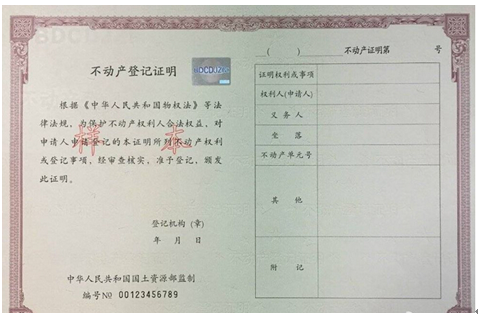 BDCDJZM
不动产登记证明
根据《中华人民共和国物权法》等法
律法规，为保护不动产权利人合法权益，对
申请人申请登记的本证明所列不动产权利
或登记事项，经审查核实，准予登记，颁发
此证明。
样本
登记机构（章）
年 月 日
中华人民共和国国土资源部监制
编号№ 00123456789
（ ） 不动产证明第 号
证明权利或事项
权利人(申请人)
义务人
坐落
不动产单元号
其他
附记